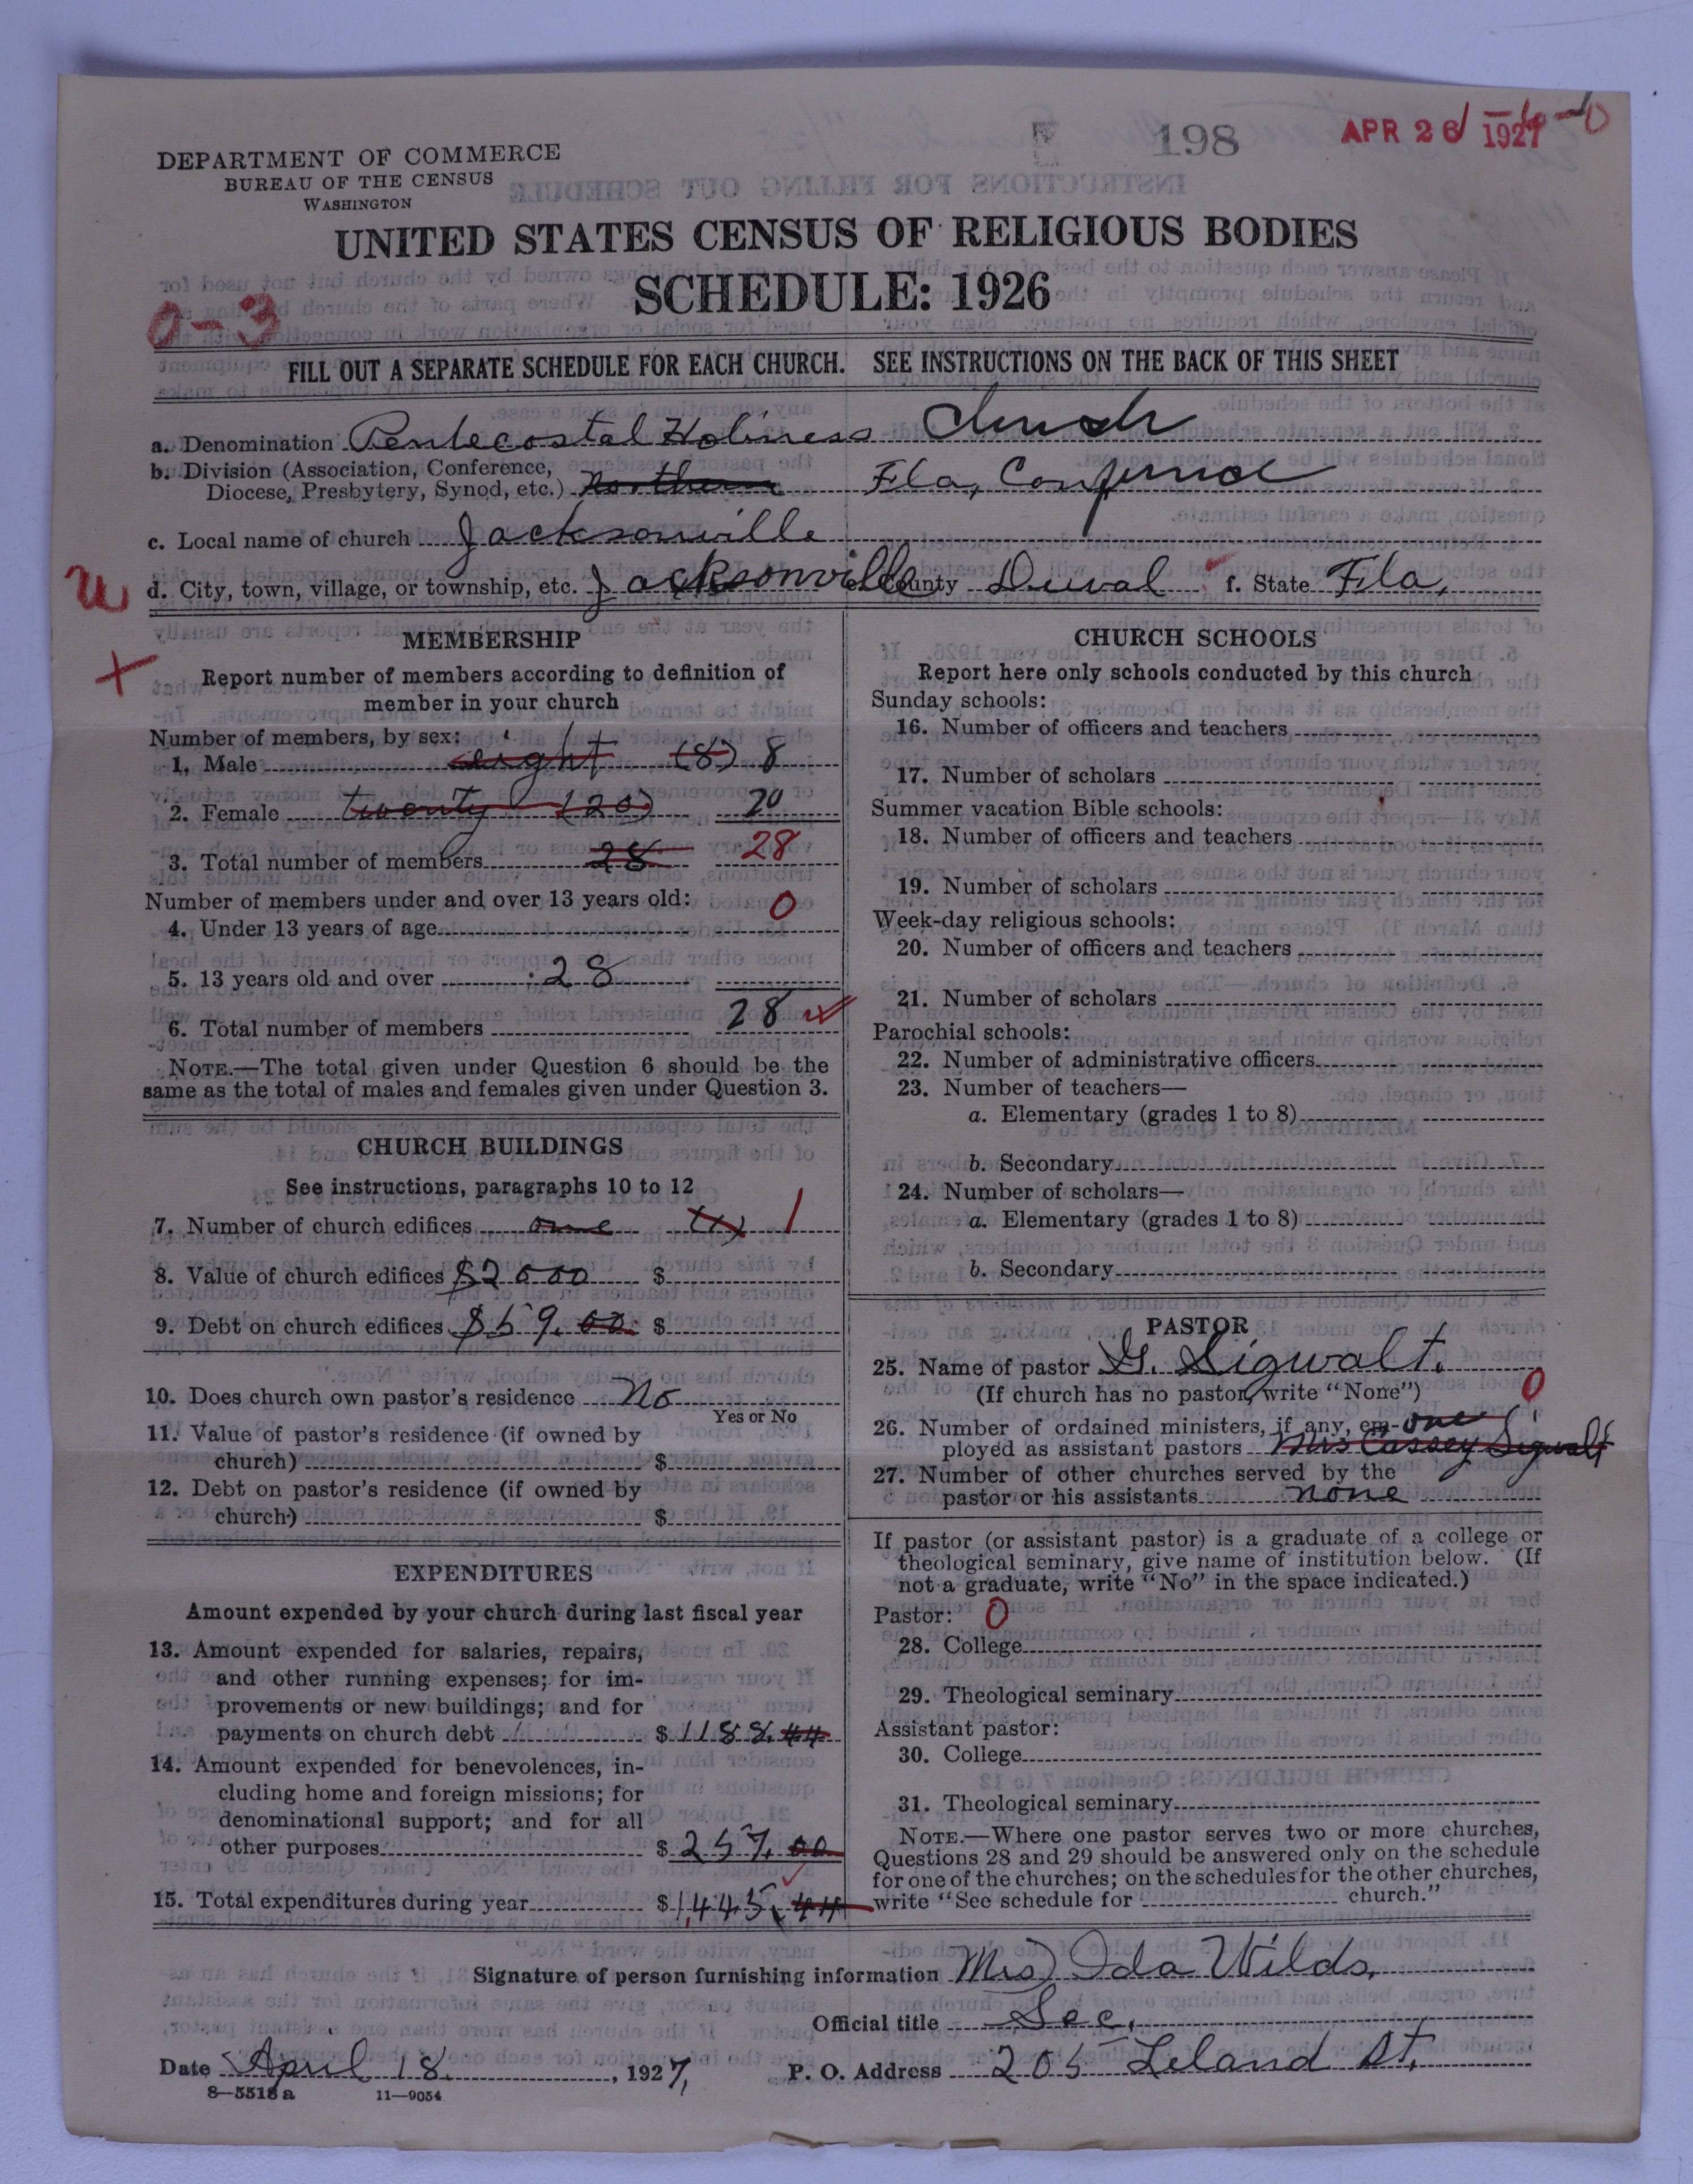 198
APR 26 1927
DEPARTMENT OF COMMERCE
BUREAU OF THE CENSUS
WASHINGTON
UNITED STATES CENSUS OF RELIGIOUS BODIES
SCHEDULE: 1926
0-3
FILL OUT A SEPARATE SCHEDULE FOR EACH CHURCH. SEE INSTRUCTIONS ON THE BACK OF THIS SHEET
a. Denomination Pentecostal Holiness Church
b. Division (Association, Conference,
Diocese, Presbytery, Synod, etc.) Northern Fla, Conference
c. Local name of church Jacksonville
d. City, town, village, or township, etc. Jacksonville County Duval f. State Fla,
MEMBERSHIP
Report number of members according to definition of
member in your church
Number of members, by sex:
1. Male eight (8) 8
2. Female twenty (20) 20
3. Total number of members 28 28
Number of members under and over 13 years old:
4. Under 13 years of age 0
5. 13 years old and over 28
6. Total number of members 28
NOTE.—The total given under Question 6 should be the
same as the total of males and females given under Question 3.
CHURCH BUILDINGS
See instructions, paragraphs 10 to 12
7. Number of church edifices one (1) 1
8. Value of church edifices $2000 $
9. Debt on church edifices $59.00 $
10. Does church own pastor's residence No
Yes or No
11. Value of pastor's residence (if owned by
church) $
12. Debt on pastor's residence (if owned by
church) $
EXPENDITURES
Amount expended by your church during last fiscal year
13. Amount expended for salaries, repairs,
and other running expenses; for im-
provements or new buildings; and for
payments on church debt $1188.44
14. Amount expended for benevolences, in-
cluding home and foreign missions; for
denominational support; and for all
other purposes $257.00
15. Total expenditures during year $1,445.44
CHURCH SCHOOLS
Report here only schools conducted by this church
Sunday schools:
16. Number of officers and teachers
17. Number of scholars
Summer vacation Bible schools:
18. Number of officers and teachers
19. Number of scholars
Week-day religious schools:
20. Number of officers and teachers
21. Number of scholars
Parochial schools:
22. Number of administrative officers
23. Number of teachers—
a. Elementary (grades 1 to 8)
b. Secondary
24. Number of scholars—
a. Elementary (grades 1 to 8)
b. Secondary
PASTOR
25. Name of pastor G. Sigwalt.
(If church has no pastor, write "None") 0
26. Number of ordained ministers, if any, em- one
ployed as assistant pastors Mrs Cassey Sigwalt
27. Number of other churches served by the
pastor or his assistants none
If pastor (or assistant pastor) is a graduate of a college or
theological seminary, give name of institution below. (If
not a graduate, write "No" in the space indicated.)
Pastor: 0
28. College
29. Theological seminary
Assistant pastor:
30. College
31. Theological seminary
NOTE.—Where one pastor serves two or more churches,
Questions 28 and 29 should be answered only on the schedule
for one of the churches; on the schedules for the other churches,
write "See schedule for church."
Signature of person furnishing information Mrs Ida Wilds,
Official title Sec,
Date April 18, 1927, P. O. Address 205 Leland St.
8—5518 a 11—9054